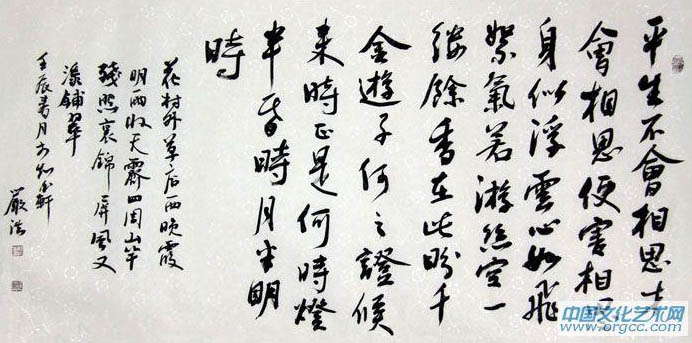 平生不會相思才
會相思便害相思
身似浮雲心如飛
絮氣若游絲空一
縷餘香在此盼千
金遊子何之證候
來時正是何時燈
半昏時月半明
時
花村外草店西晚霞
明雨收天霽四圍山竿
殘照裏錦屏風又
添鋪翠
壬辰春月於軒
嚴浩
中国文化艺术网
www.orgcc.com